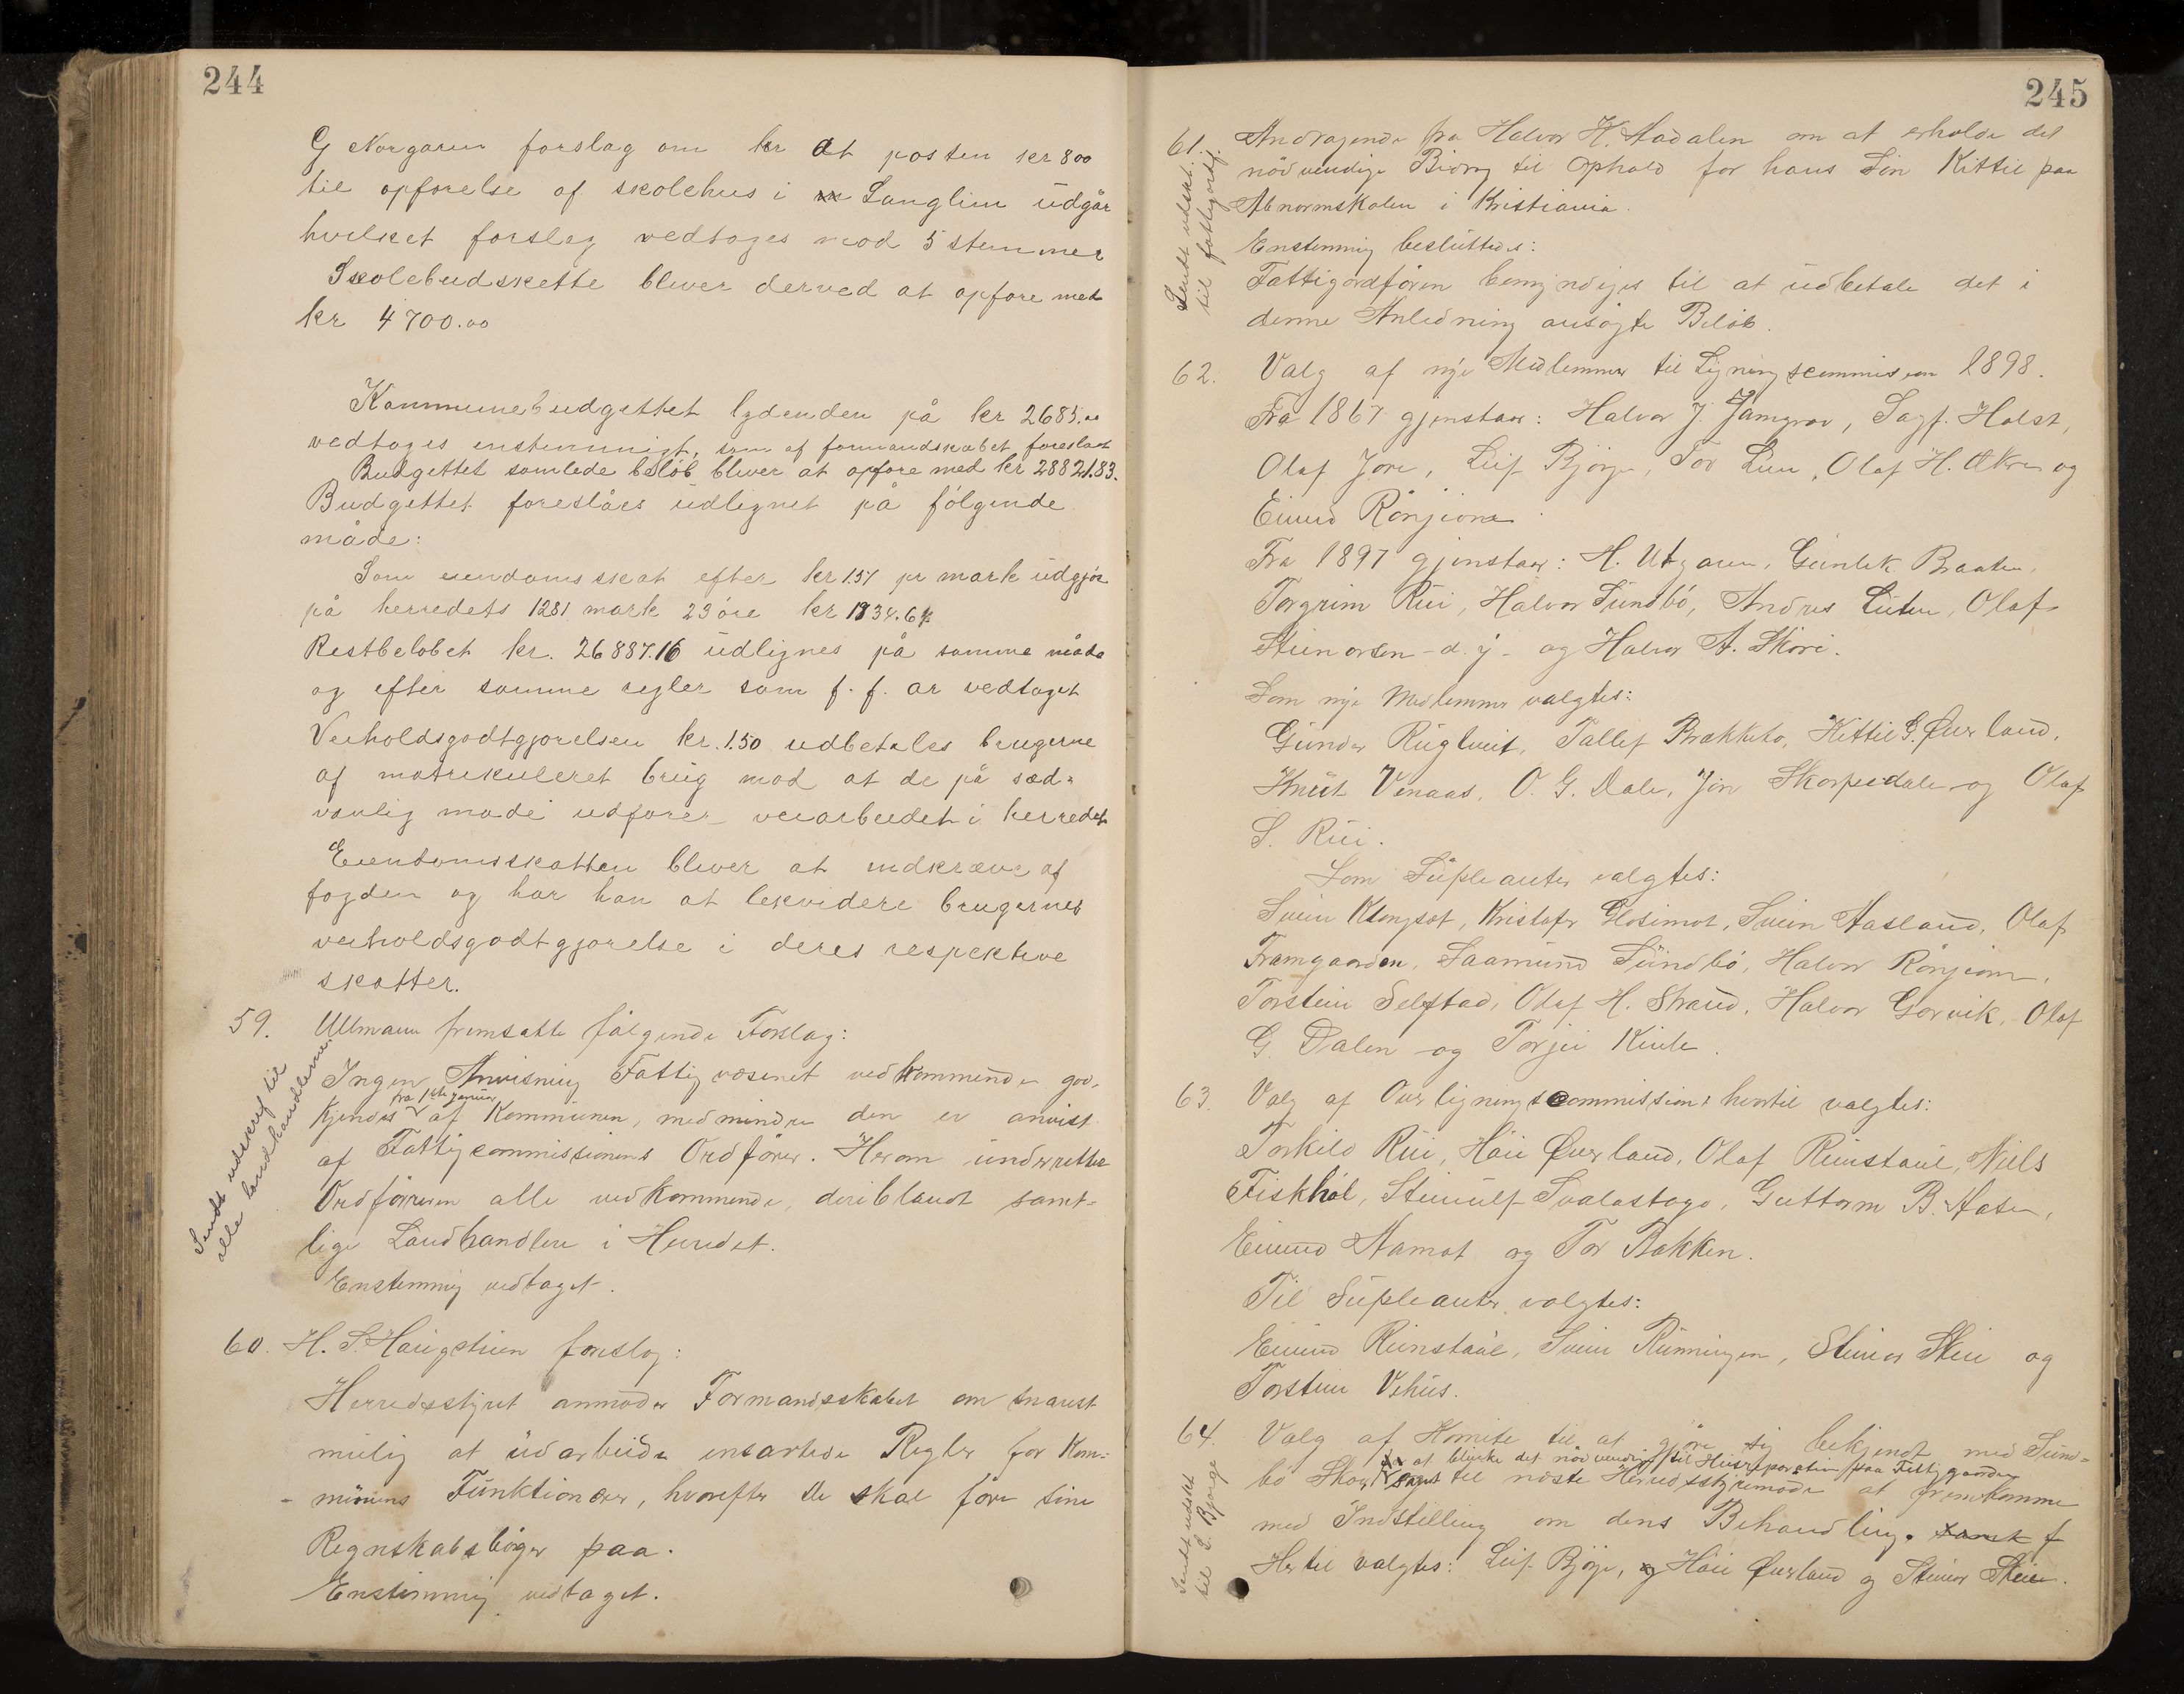 244
G Norgaren forslag om kr at posten kr 800
til opførelse af skolehus i Langlim udgår
hvilket forslag vedtoges mod 5 stemmer
Skolebudskette bliver derved at opføre med
kr 4700.00
Kommunebudgettet lydenden på kr 2685.00
vedtoges enstemmigt, som af formandskabet foreslaat
Budgettet samlede beløb bliver at opføre med kr 28821.83.
Budgettet foreslåes udlignet på følgende
måde:
Som eiendomsskat efter kr 1.57 pr mark udgjør
på herredets 1281 mark 23 øre kr 1934.67
Restbeløbet kr. 26887.16 udlignes på samme måde
og efter samme regler som f. f. år vedtaget
Veiholdsgodtgjørelsen kr. 1.50 udbetales brugerne
af matrikuleret brug mod at de på sæd-
vanlig måde udfører veiarbeidet i herredet
Eiendomsskatten bliver at indkræve af
fogden og har han at lekvidere brugernes
veiholdsgodtgjørelse i deres respektive
skatter.
59. Ullmann fremsatte følgende Forslag:
Ingen Anvisning Fattigvæsenet vedkommende god-
fra 1ste januar
kjendes af Kommunen, medmindre den er anvist
af Fattigcommissionens Ordfører. Herom underretter
Ordføreren alle vedkommende, deriblandt samt-
lige Landhandlere i Herredet.
Enstemmig vedtaget.
Sendt udskrift til
alle landhandlerne.
60. H. S. Haugstuen forslog:
Herredsstyret anmoder Formandsskabet om snarest
mulig at udarbeide ensartede Regler for Kom-
munens Funktionærer, hvorefter de skal føre sine
Regnskabsbøger paa.
Enstemmig vedtaget.
245
61. Andragende fra Halvor H. Aadalen om at erholde det
nødvendige Bidrag til Ophold for hans Søn Kittil paa
Abnormskolen i Kristiania.
Enstemmig besluttedes:
Fattigordføren bemyndiges til at udbetale det i
denne Anledning ansøgte Beløb.
Sendt udskr.
til fattigordf.
62. Valg af nye Medlemmer til Ligningscommission 1898.
Fra 1867 gjenstaar: Halvor J. Jamgrav, Sagf. Holst,
Olaf Jore, Leif Bjørge, Tov Lien, Olaf H. Økre og
Eivind Rønjom
Fra 1897 gjenstaar: H. Utgaren, Gunlek Braaten,
Torgrim Rui, Halvor Sundbø, Andres Luten, Olaf
Steinarsen - d. y - og Halvor A. Skori.
Som nye Medlemmer valgtes:
Gunder Rugtveit, Tallef Brækketo, Kittil G. Øverland,
Knut Venaas, O. G. Dale, Jon Skorpedalen og Olaf
S. Rui.
Som Supleanter valgtes:
Svein Klengsøt, Kristofr Glosimot, Svein Aasland, Olaf
Framgaarden, Saamund Sundbø, Halvor Rønjom,
Torstein Selstad, Olaf H. Strand, Halvor Gorvik, Olaf
G. Dalen og Torjei
63. Valg af Overligningscommission: hvortil valgtes:
Torkild Rui, Høie Øverland, Olaf Reinstaul, Niels
Fiskhøl, Steinulf Svalastoga, Guttorm B. Aasen,
Eivind Aamot og Tor Bakken.
Til Supleanter valgtes:
Eivind Reinstaul, Svein Rønningen, Steinar Skeie og
Torstein Vehus.
64. Valg af Komite til at gjøre sig bekjendt med Sund-
for at bliveke det nødvendige til Husreparation paa Fattiggaarden
bø Skov samt til næste Herredsstyremøde at fremkomme
med Indstilling om dens Behandling. samt f
Hertil valgtes: Leif Bjørge, og Høie Øverland og Steinar Skeie.
Sendt udskr
til L. Bjørge